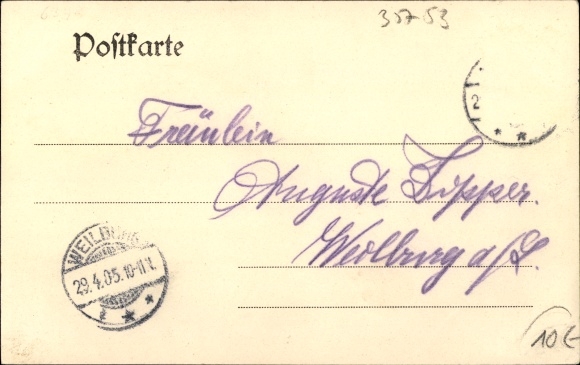 35753
Postkarte
2
Fräulein
Auguste Lipper.
Weilburg a/L.
WEILBURG
29.4.05.10-11V.
10€